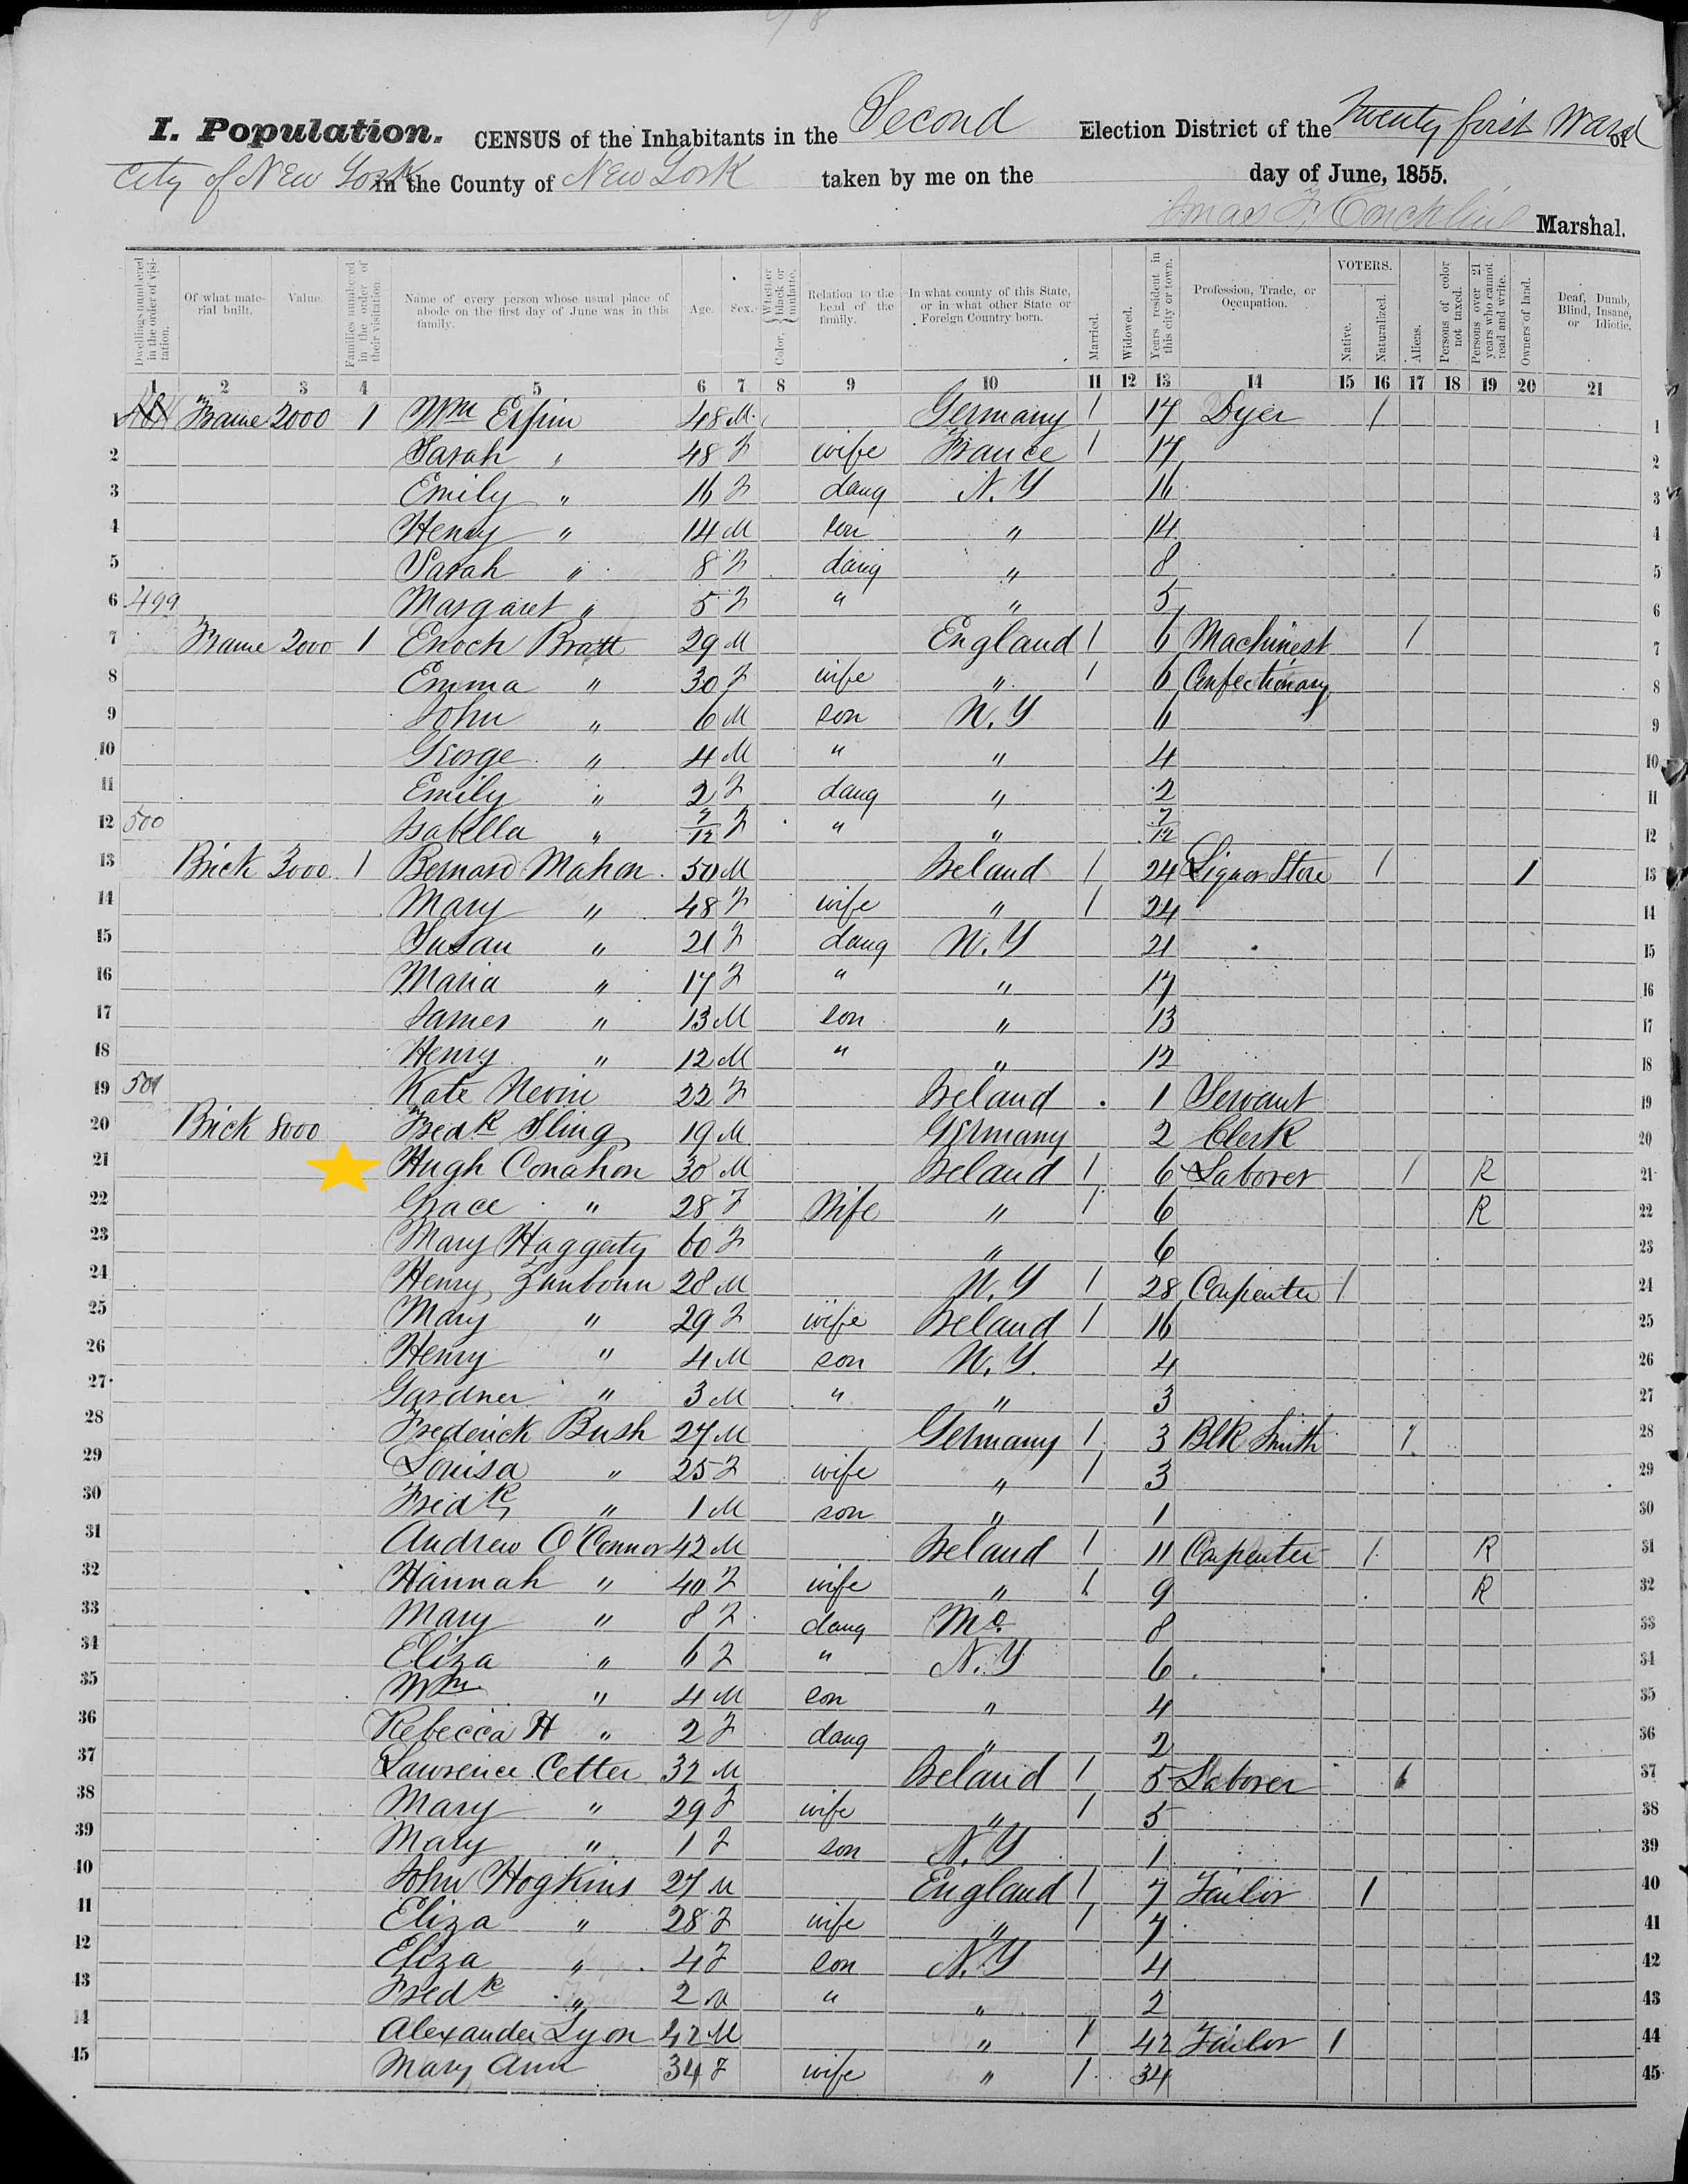 I. Population. CENSUS of the Inhabitants in the Second Election District of the Twenty first Ward of
City of New York in the County of New York taken by me on the day of June, 1855.
Conchlin Marshal.
Dwellings numbered in the order of visitation. Of what material built. Value. Families numbered in the order of their visitation. Name of every person whose usual place of abode on the first day of June was in this family. Age. Sex. Color, { Whether black or mulatto. Relation to the head of the family. In what county of this State, or in what other State or Foreign Country born. Married. Widowed. Years resident in this city or town. Profession, Trade, or Occupation. VOTERS. Native. Naturalized. Aliens. Persons of color not taxed. Persons over 21 years who cannot read and write. Owners of land. Deaf, Dumb, Blind, Insane, or Idiotic.
1 2 3 4 5 6 7 8 9 10 11 12 13 14 15 16 17 18 19 20 21
Frame 2000 1 Wm 48 M Germany 1 17 Dyer 1 1
2 Sarah " 48 F wife France 1 17 2
3 Emily " 16 F daug N.Y 16 3
4 Henry " 14 M son " 14 4
5 Sarah " 8 F daug " 8 5
6 499 Margaret " 5 F " " 5 6
7 Frame 2000 1 Enoch Bratt 29 M England 1 6 Machinest 1 7
8 Emma " 30 F wife " 1 6 Confectionary 8
9 John " 6 M son N.Y 6 9
10 George " 4 M " " 4 10
11 Emily " 2 F daug " 2 11
12 500 Isabella " 7/12 F " " 7/12 12
13 Brick 3000 1 Bernard Mahon 50 M Ireland 1 24 Liquor Store 1 1 13
14 Mary " 48 F wife " 1 24 14
15 Susan " 21 F daug N.Y 21 15
16 Maria " 17 F " " 17 16
17 James " 13 M son " 13 17
18 Henry " 12 M " " 12 18
19 501 Kate Nevin 22 F Ireland 1 Servant 19
20 Brick 8000 Fredk Sling 19 M Germany 2 Clerk 20
21 Hugh Conahon 30 M Ireland 1 6 Laborer 1 R 21
22 Grace " 28 F Wife " 1 6 R 22
23 Mary Haggerty 60 F " 6 23
24 Henry 28 M N.Y 1 28 Carpenter 1 24
25 Mary " 29 F wife Ireland 1 16 25
26 Henry " 4 M son N.Y. 4 26
27 Gardner " 3 M " " 3 27
28 Frederick Bush 27 M Germany 1 3 Blk Smith 1 28
29 Louisa " 25 F wife " 1 3 29
30 Fredk " 1 M son " 1 30
31 Andrew O'Connor 42 M Ireland 1 11 Carpenter 1 R 31
32 Hannah " 40 F wife " 1 9 R 32
33 Mary " 8 F daug Mo. 8 33
34 Eliza " 6 F " N.Y 6 34
35 Wm " 4 M son " 4 35
36 Rebecca H " 2 F daug " 2 36
37 Lawrence Cetter 32 M Ireland 1 5 Laborer 1 37
38 Mary " 29 F wife " 1 5 38
39 Mary " 1 F son N.Y 1 39
40 John Hogkins 27 M England 1 7 Tailor 1 40
41 Eliza " 28 F wife " 1 7 41
42 Eliza " 4 F son N.Y 4 42
43 Fredk " 2 M " " 2 43
44 Alexander Lyon 42 M " 1 42 Tailor 1 44
45 Mary Ann 34 F wife " 1 34 45